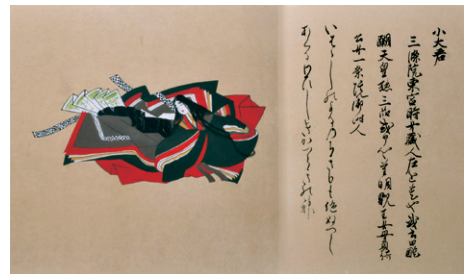 小大君
三條院東宮時女蔵人左近是也或云醍
醐天皇孫三品式部卿重明親王女母貞信
公女一条院御時人
いはゝしのよるのちきりも絶ぬへし
あくるわひしきかつらきの神